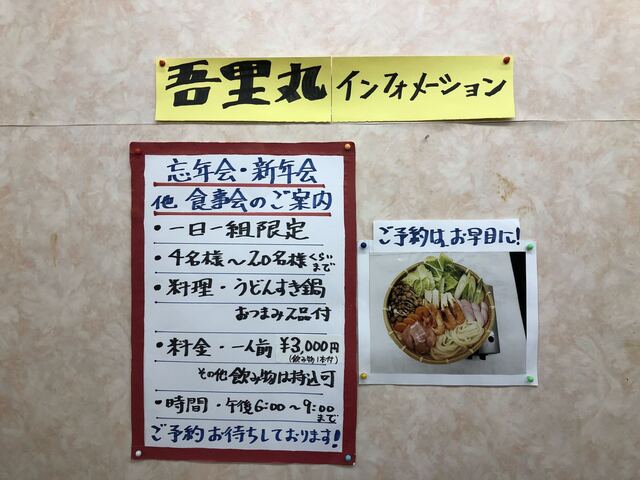 吾里丸 インフォメーション
忘年会・新年会
他 食事会のご案内
・一日一組限定
・4名様〜20名様くらいまで
・料理・うどんすき鍋
おつまみ2品付
・料金・一人前 ¥3,000円
(飲み物1本付)
その他 飲み物は持込可
・時間・午後6:00〜9:00まで
ご予約お待ちしております!
ご予約は、お早目に!